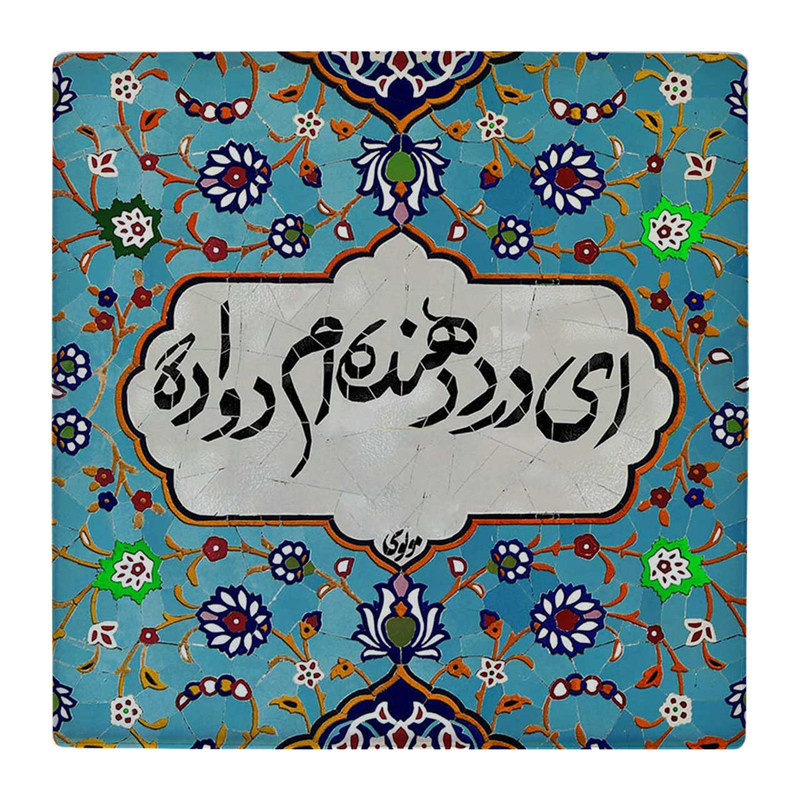 ای درد دهنده ام دوا ده
مولوی